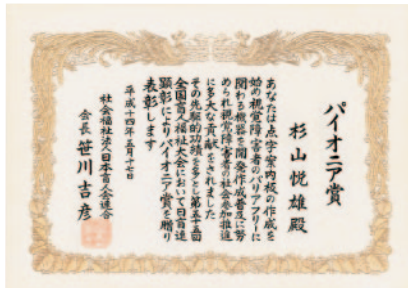 パイオニア賞
杉山悦雄殿
あなたは点字案内板の作成を
始め視覚障害者のバリアフリーに
関わる機器を開発作成普及に努
められ視覚障害者の社会参加推進
に多大な貢献をされました
その先駆的功績を多とし第五十五回
全国盲人福祉大会において日盲連
顕彰によりパイオニア賞を贈り
表彰します
平成十四年五月十七日
社会福祉法人日本盲人会連合
会長 笹川吉彦